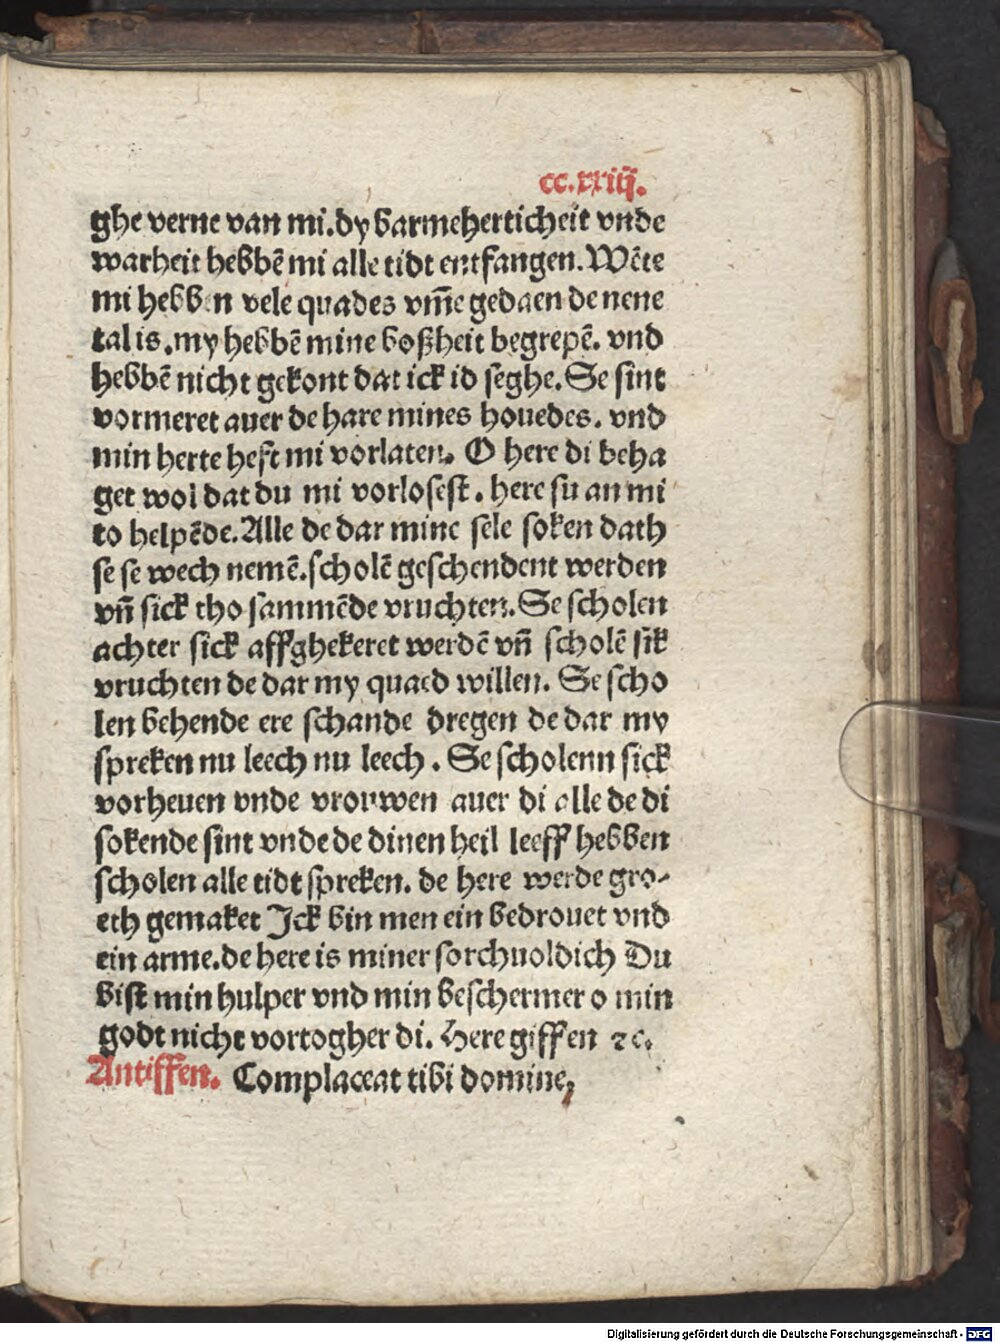 cc.xxiiij.
ghe verne van mi. dy barmeherticheit vnde
warheit hebbē mi alle tidt entfangen. Wēte
mi hebben vele quades vm̄e gedaen de nene
tal is. my hebbē mine boßheit begrepē. vnd
hebbē nicht gekont dat ick id seghe. Se sint
vormeret auer de hare mines houedes. vnd
min herte heft mi vorlaten. O here di beha
get wol dat du mi vorlosest. here su an mi
to helpēde. Alle de dar mine sele soken dath
se se wech nemē. scholē geschendent werden
vn̄ sick tho sammēde vruchten. Se scholen
achter sick affghekeret werdē vn̄ scholē sik
vruchten de dar my quaed willen. Se scho
len behende ere schande dregen de dar my
spreken nu leech nu leech. Se scholenn sick
vorheuen vnde vrouwen auer di alle de di
sokende sint vnde de dinen heil leeff hebben
scholen alle tidt spreken. de here werde gro-
eth gemaket Jck bin men ein bedrouet vnd
ein arme. de here is miner sorchuoldich Du
bist min hulper vnd min beschermer o min
godt nicht vortogher di. Here giff en ꝛc.
Antiffen. Complaceat tibi domine,
Digitalisierung gefördert durch die Deutsche Forschungsgemeinschaft - DFG